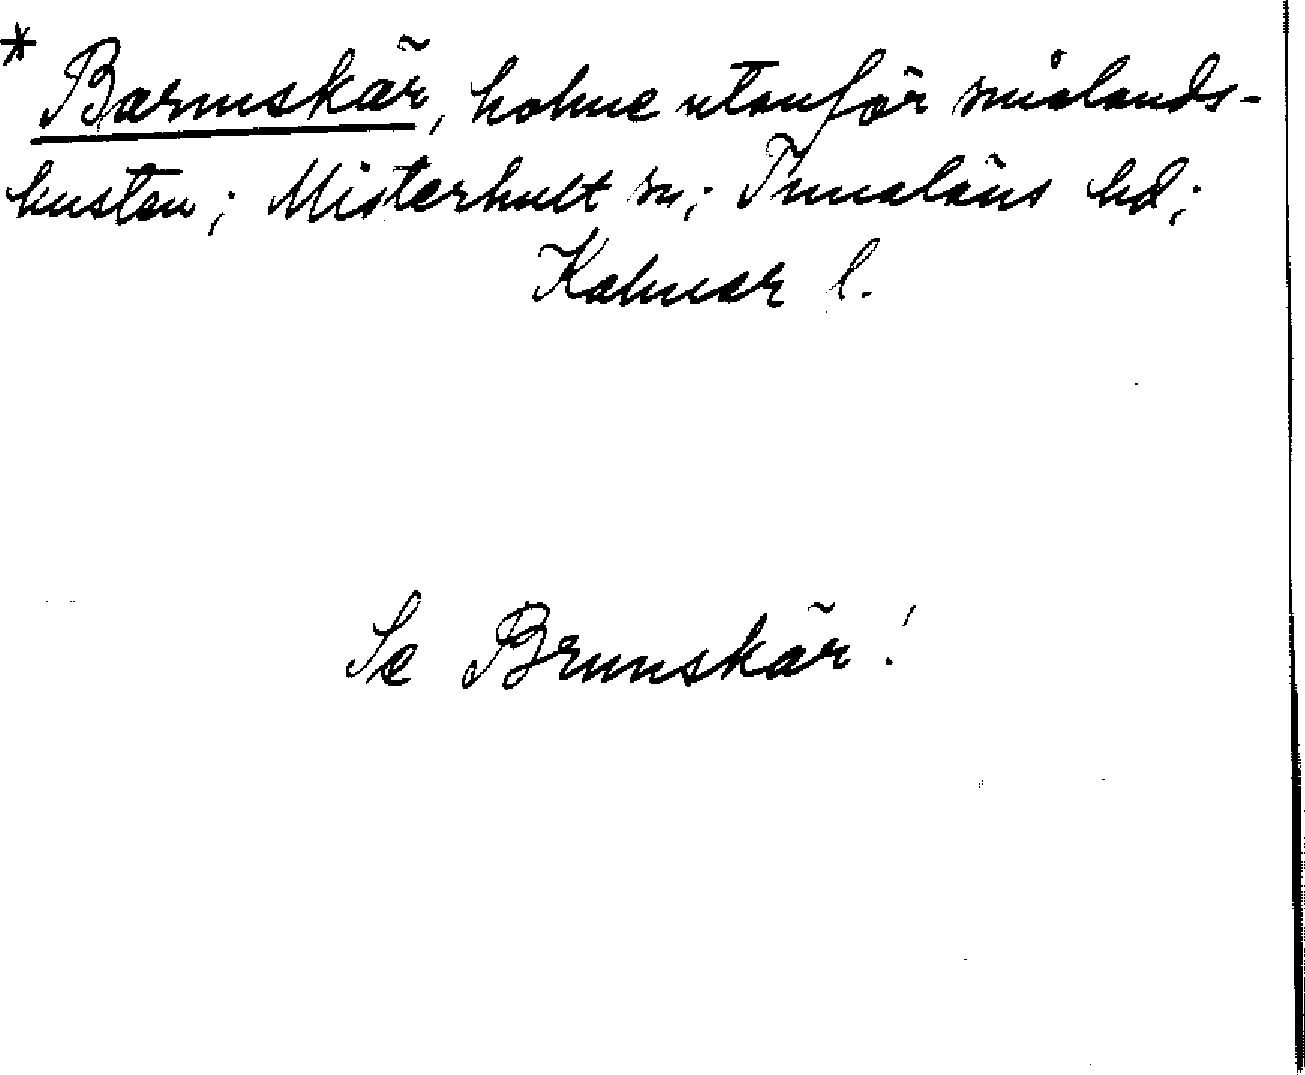 * Barnuskär, holme utanför smålands-
kusten; Misterhult sn; Tunaläns hd;
Kalmar l.
Se Brunskär!